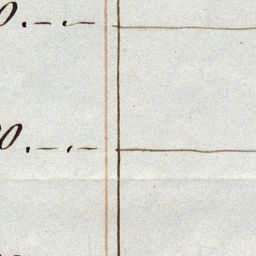 0.–.–
0.–.–